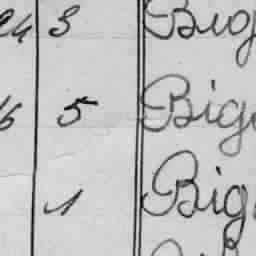 24 3 Big
16 5 Big
1 Big